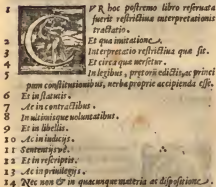 1 CVR hoc postremo libro reseruata
fuerit restrictiua interpretationis
tractatio.
2 Et qua imitatione.
3 Interpretatio restrictiua quæ sit.
4 Et circa quæ versetur.
5 In legibus, prætoris edictis, ac princi
pum constitutionibus, verba propriè accipienda esse.
6 Et in statutis.
7 Ac in contractibus.
8 In vltimisque voluntatibus.
9 Et in libellis.
10 Ac in iudicijs.
11 Sententijsvè.
12 Et in rescriptis.
13 Ac in priuilegijs.
14 Nec non & in quacunque materia ac dispositione.